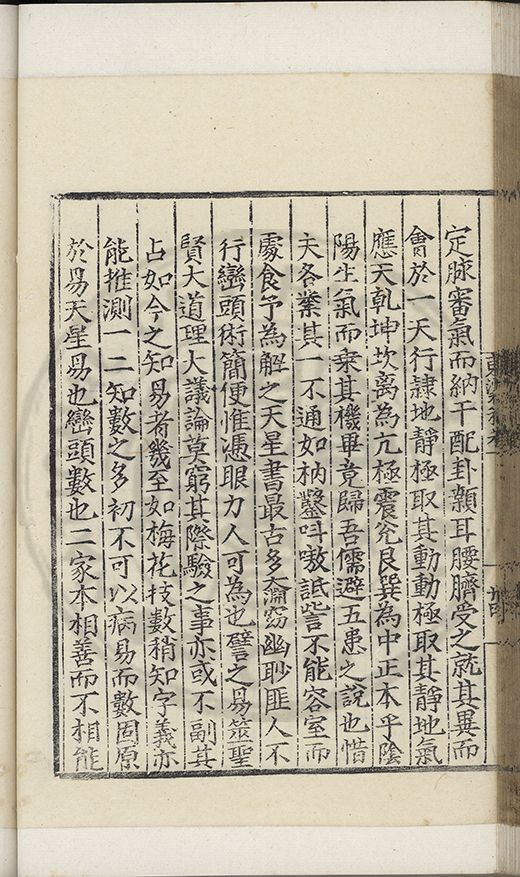 定脉審氣而納干配卦顙耳腰臍受之就其異而
會於一天行隷地靜極取其動動極取其靜地氣
應天乾坤坎离為亢極震兊艮巽為中正本乎陰
陽生氣而乗其機畢竟歸吾儒避五患之說也惜
夫各業其一不通如枘鑿呌嗷詆訾不能容室而
處食予為解之天星書最古多淪竊幽眇匪人不
行巒頭術簡便惟憑眼力人可為也譬之易筮聖
賢大道理大議論莫窮其際驗之事亦或不副其
占如今之知易者幾至如梅花技數稍知字義亦
能推測一二知數之多初不可以病易而數固原
於易天星易也巒頭數也二家本相善而不相能